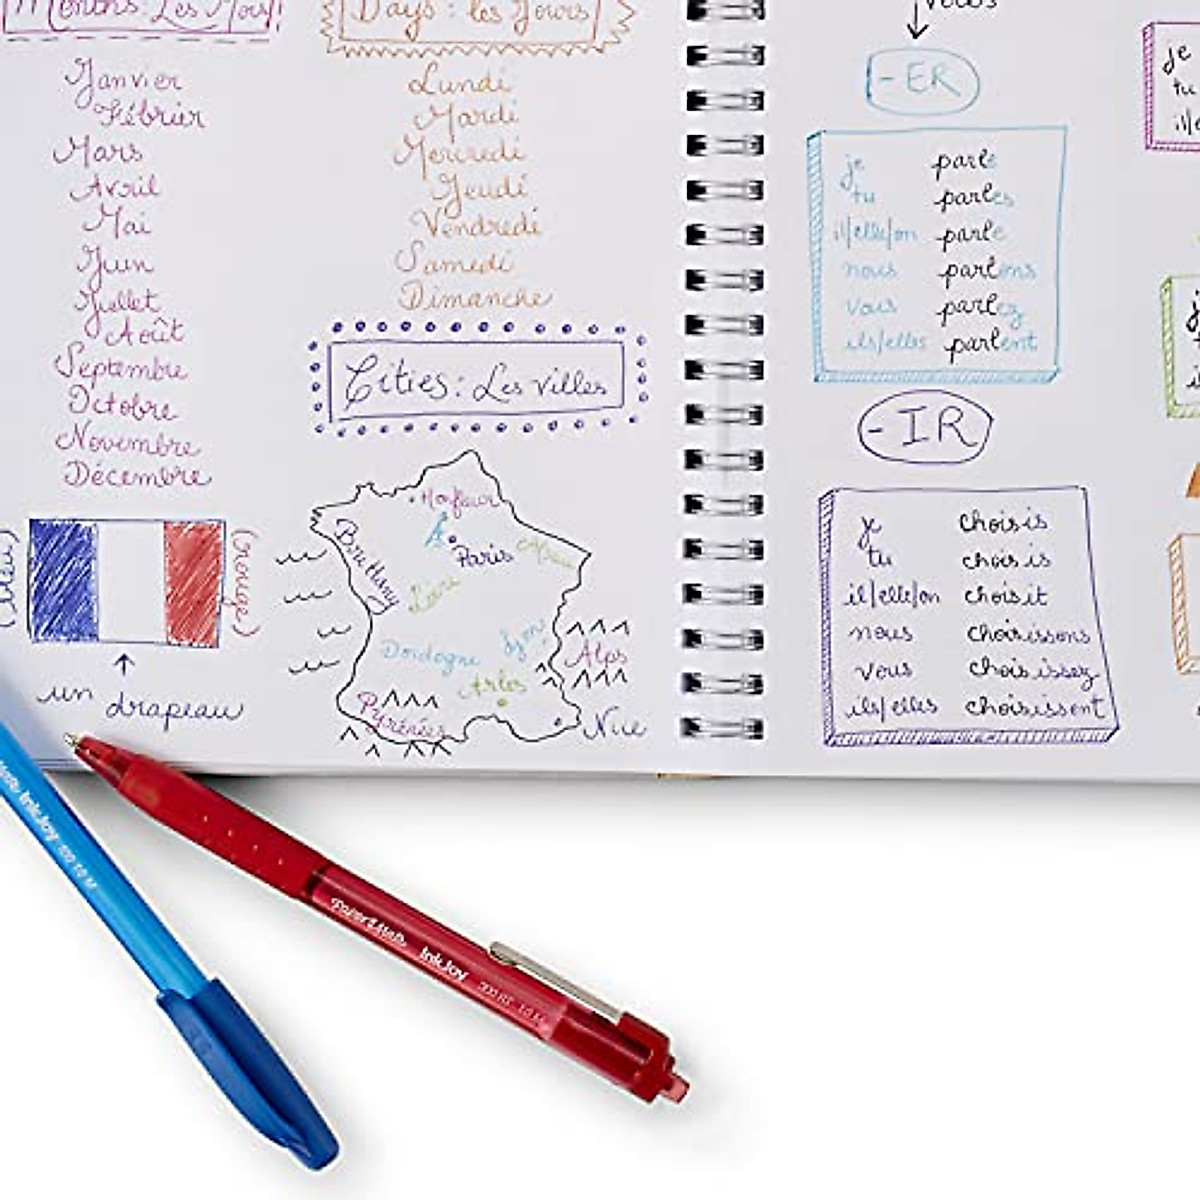 Months: Les Mois!
Janvier
Fébrier
Mars
Avril
Mai
Juin
Juillet
Août
Septembre
Octobre
Novembre
Décembre
(bleu)
(rouge)
un drapeau
Days: les Jours
Lundi
Mardi
Mercredi
Jeudi
Vendredi
Samedi
Dimanche
Cities: Les villes
Honfleur
Brittany
Paris
Loire
Dordogne
Lyon
Alps
Arles
Pyrénées
Nice
-ER
je parle
tu parles
il/elle/on parle
nous parlons
vous parlez
ils/elles parlent
-IR
je choisis
tu choisis
il/elle/on choisit
nous choisissons
vous choisissez
ils/elles choisissent
je
tu
il/e
InkJoy 100 1.0 M
PaperMate InkJoy 300 RT 1.0 M